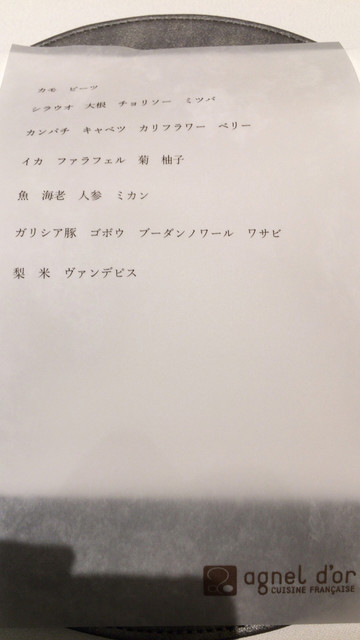 カモ　ビーツ
シラウオ　大根　チョリソー　ミツバ
カンパチ　キャベツ　カリフラワー　ベリー
イカ　ファラフェル　菊　柚子
魚　海老　人参　ミカン
ガリシア豚　ゴボウ　ブーダンノワール　ワサビ
梨　米　ヴァンデピス
agnel d'or
CUISINE FRANÇAISE